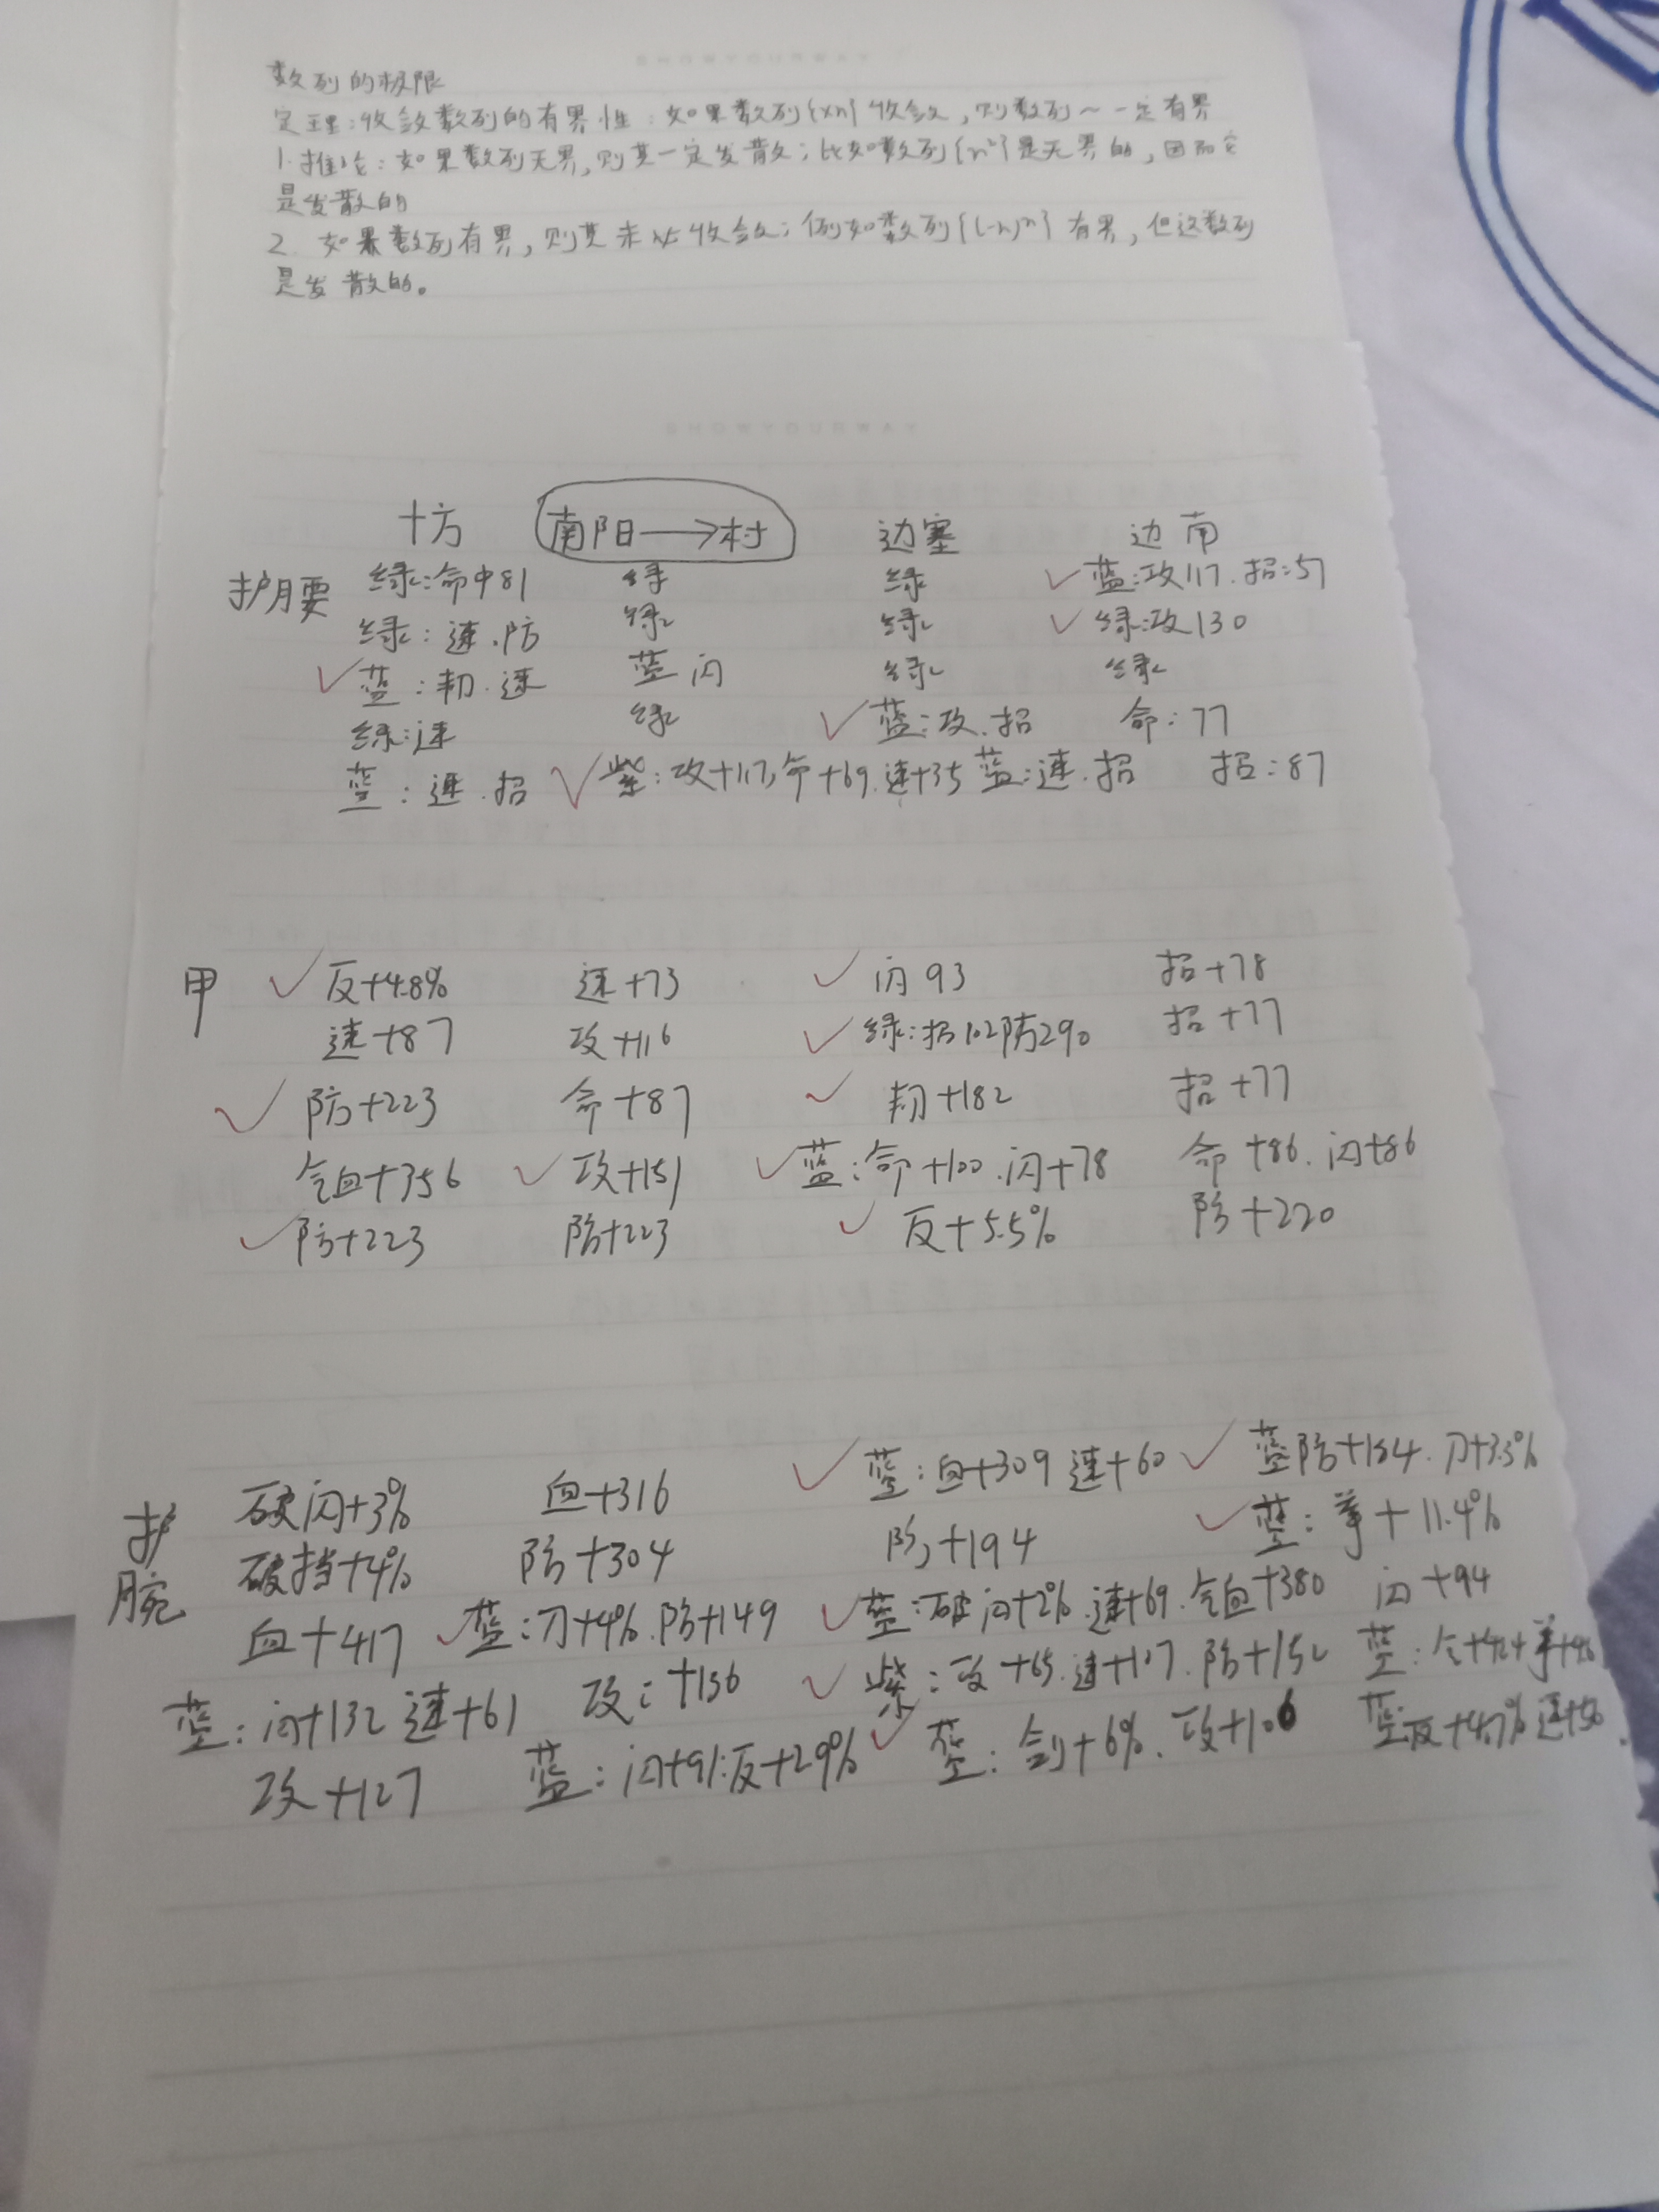 数列的极限
定理:收敛数列的有界性:如果数列{xn}收敛,则数列~一定有界
1.推论:如果数列无界,则其一定发散;比如数列{n²}是无界的,因而它
是发散的
2.如果数列有界,则其未必收敛;例如数列{(-1)ⁿ}有界,但这数列
是发散的。
十方 南阳→村 边塞 边南
护腰 绿:命中81 绿 绿 ✓蓝:攻117.招:57
绿:速.防 绿 绿 ✓绿:攻130
✓蓝:韧.速 蓝闪 绿 绿
绿:速 绿 ✓蓝:攻.招 命:77
蓝:速.招 ✓紫:攻+117,命+69.速+35 蓝:速.招 招:87
甲 ✓反+4.8% 速+73 ✓闪93 招+78
速+87 攻+116 ✓绿:招102防290 招+77
✓防+223 命+87 ✓韧+182 招+77
气血+356 ✓攻+151 ✓蓝:命+100.闪+78 命+86.闪+86
✓防+223 防+223 ✓反+5.5% 防+220
护腕 破闪+3% 血+316 ✓蓝:血+309 速+60 ✓蓝防+184.刀+3.3%
破挡+4% 防+304 防+194 ✓蓝:拳+11.4%
血+417 ✓蓝:刀+4%.防+149 ✓蓝:破闪+2%.速+69.气血+380 闪+94
蓝:闪+132 速+61 攻:+136 ✓紫:攻+65.速+107.防+152 蓝:
攻+127 蓝:闪+91:反+2.9% ✓蓝:剑+6%.攻+106 蓝反+4.7% 速+56